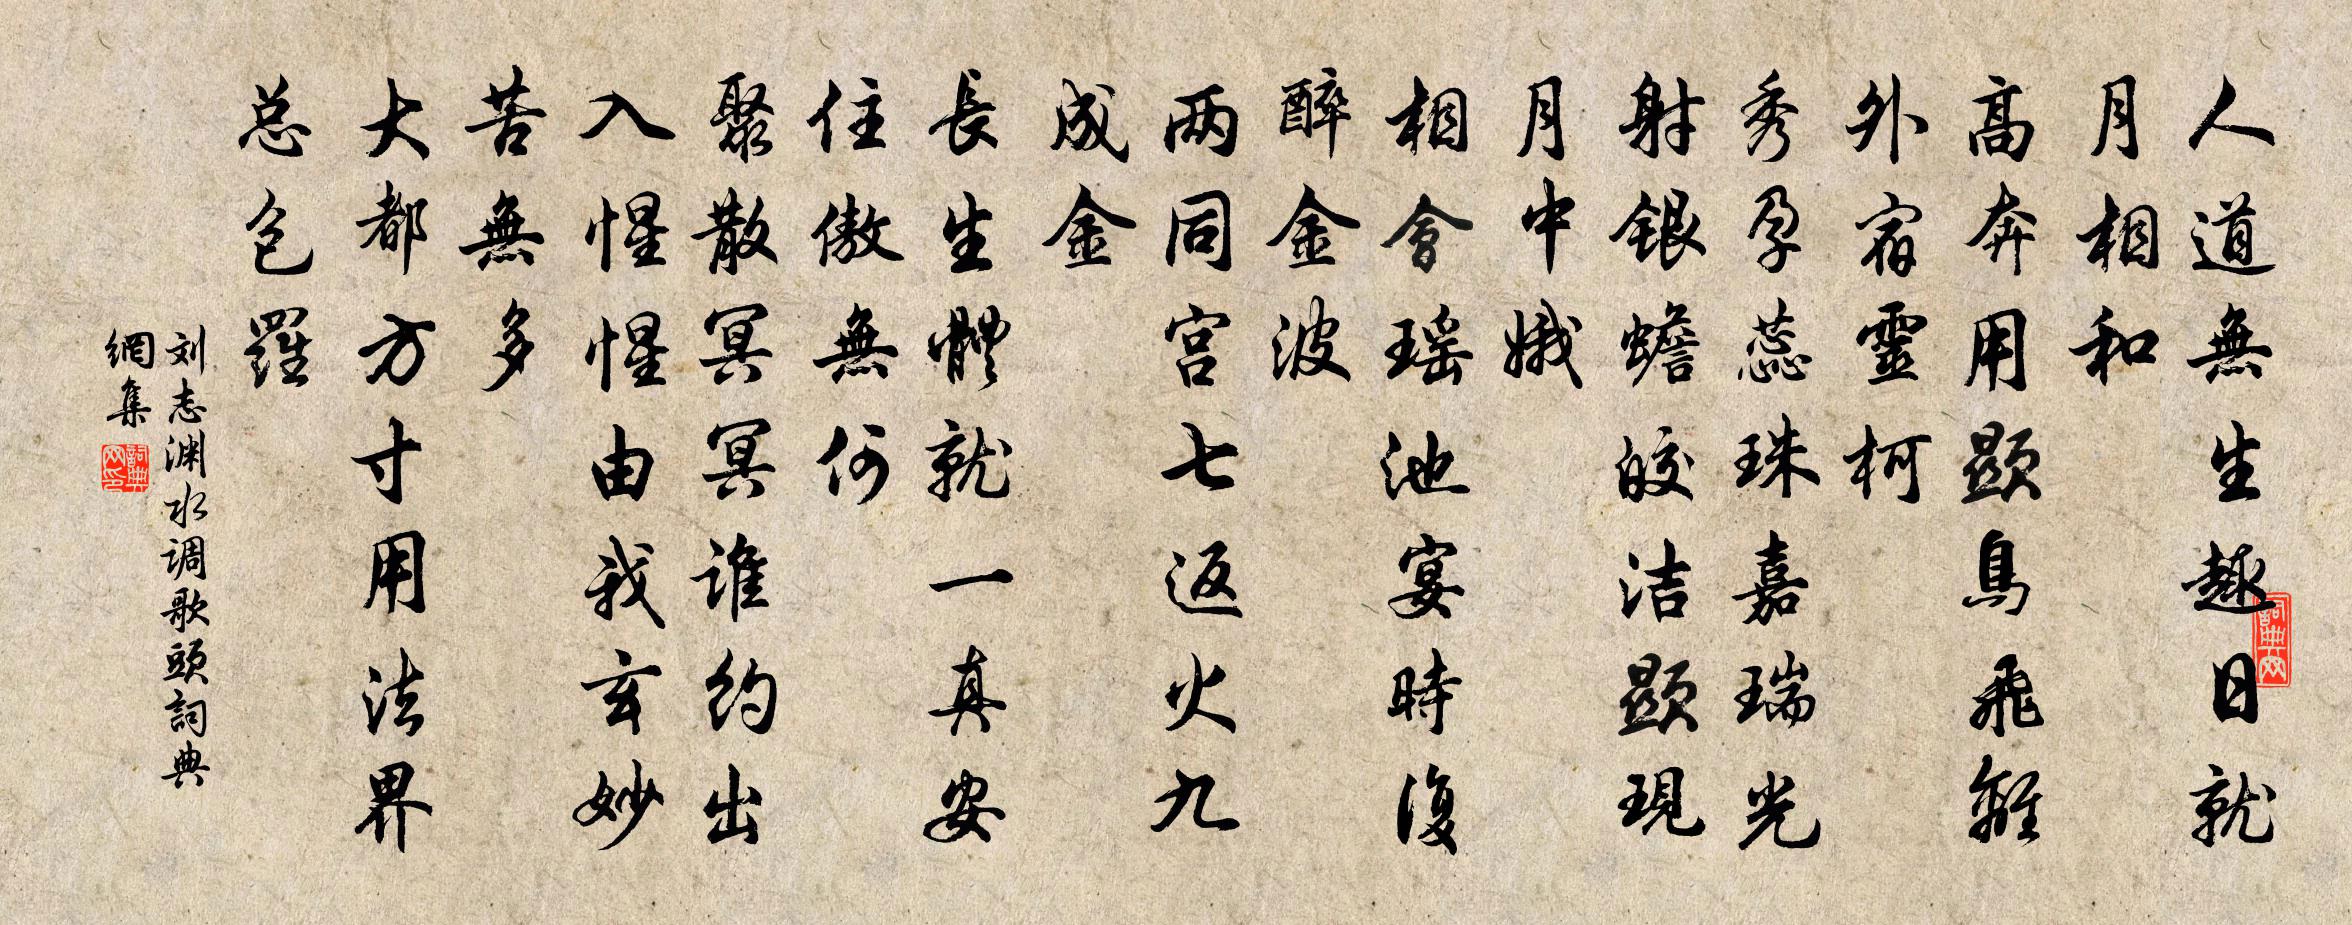 人道無生趣日就
月相和
高奔用顕鳥飛離
外宿靈柯
秀孕蕊珠嘉瑞光
射銀蟾皎洁顕現
月中娥
相會瑶池宴時復
醉金波
两同宫七返火九
成金
長生體就一真安
住傲無何
聚散冥冥谁約出
入惺惺由我玄妙
苦無多
大都方寸用法界
总包羅
刘志渊水调歌頭詞典
網集
詞典网
詞典网印